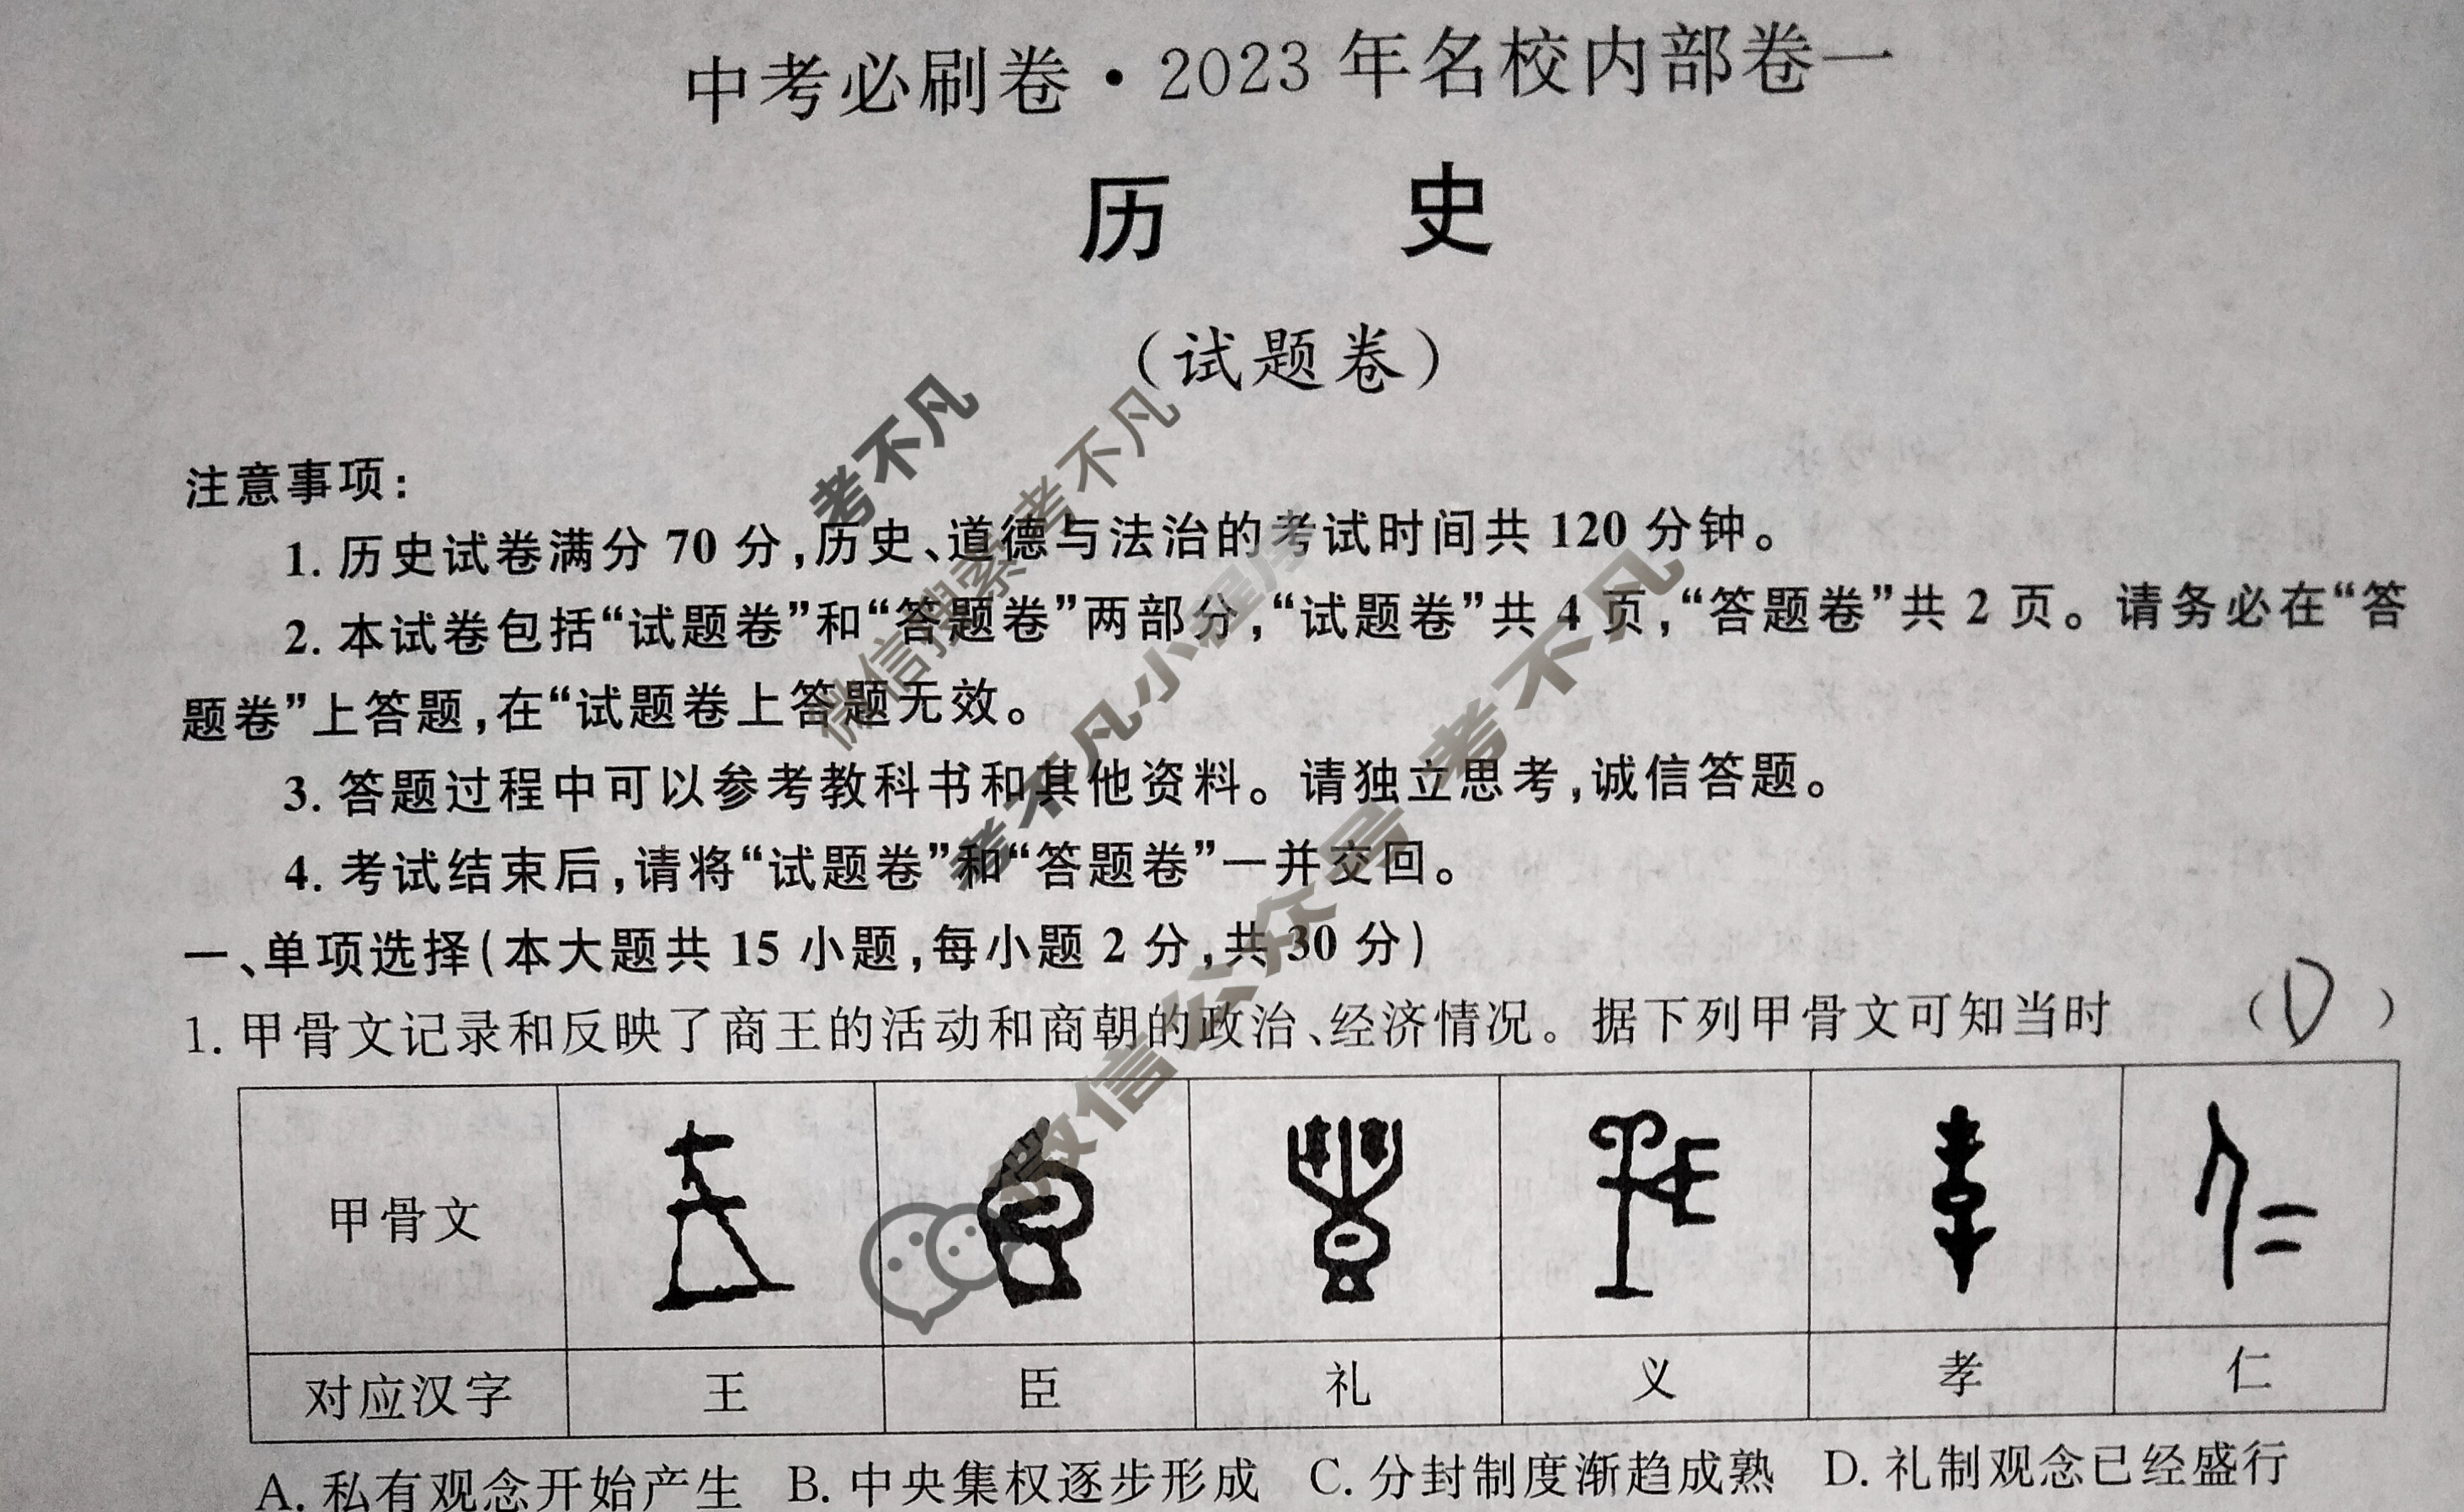 中考必刷卷·2023年名校内部卷一
历 史
(试题卷)
注意事项:
1. 历史试卷满分 70 分,历史、道德与法治的考试时间共 120 分钟。
2. 本试卷包括“试题卷”和“答题卷”两部分,“试题卷”共 4 页,“答题卷”共 2 页。请务必在“答
题卷”上答题,在“试题卷上答题无效。
3. 答题过程中可以参考教科书和其他资料。请独立思考,诚信答题。
4. 考试结束后,请将“试题卷”和“答题卷”一并交回。
一、单项选择(本大题共 15 小题,每小题 2 分,共 30 分)
1. 甲骨文记录和反映了商王的活动和商朝的政治、经济情况。据下列甲骨文可知当时 (D)
甲骨文
对应汉字 王 臣 礼 义 孝 仁
A. 私有观念开始产生 B. 中央集权逐步形成 C. 分封制度渐趋成熟 D. 礼制观念已经盛行
考不凡
微信搜索 考不凡
考不凡小程序
微信公众号 考不凡